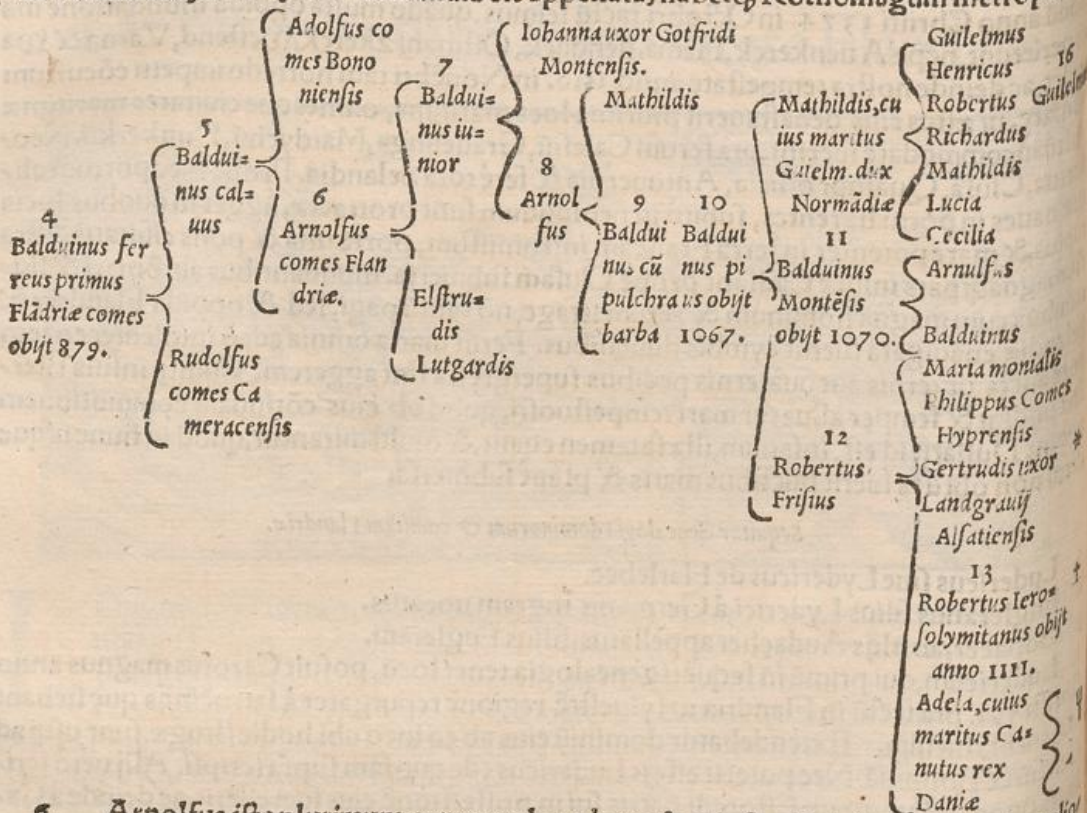 4
Balduinus fer
reus primus
Flãdriæ comes
obijt 879.
5
Baldui=
nus cal=
uus
Rudolfus
comes Ca
meracensis
Adolfus co
mes Bono
niensis
6
Arnolfus
comes Flan
driæ.
7
Baldui=
nus iu=
nior
Elstru=
dis
Lutgardis
Iohanna uxor Gotfridi
Montensis.
8
Arnol
fus
Mathildis
9
Baldui
nus cũ
pulchra
barba
10
Baldui
nus pi
us obijt
1067.
Mathildis, cu
ius maritus
Guielm. dux
Normãdiæ
11
Balduinus
Montẽsis
obijt 1070.
12
Robertus
Frisius
Guilelmus
Henricus
Robertus
Richardus
Mathildis
Lucia
Cecilia
16
Arnulfus
Balduinus
Maria monialis
Philippus Comes
Hyprensis
Gertrudis uxor
Landgrauij
Alsatiensis
13
Robertus Iero=
solymitanus obijt
anno 1111.
Adela, cuius
maritus Ca=
nutus rex
Daniæ
6 Arnolfus